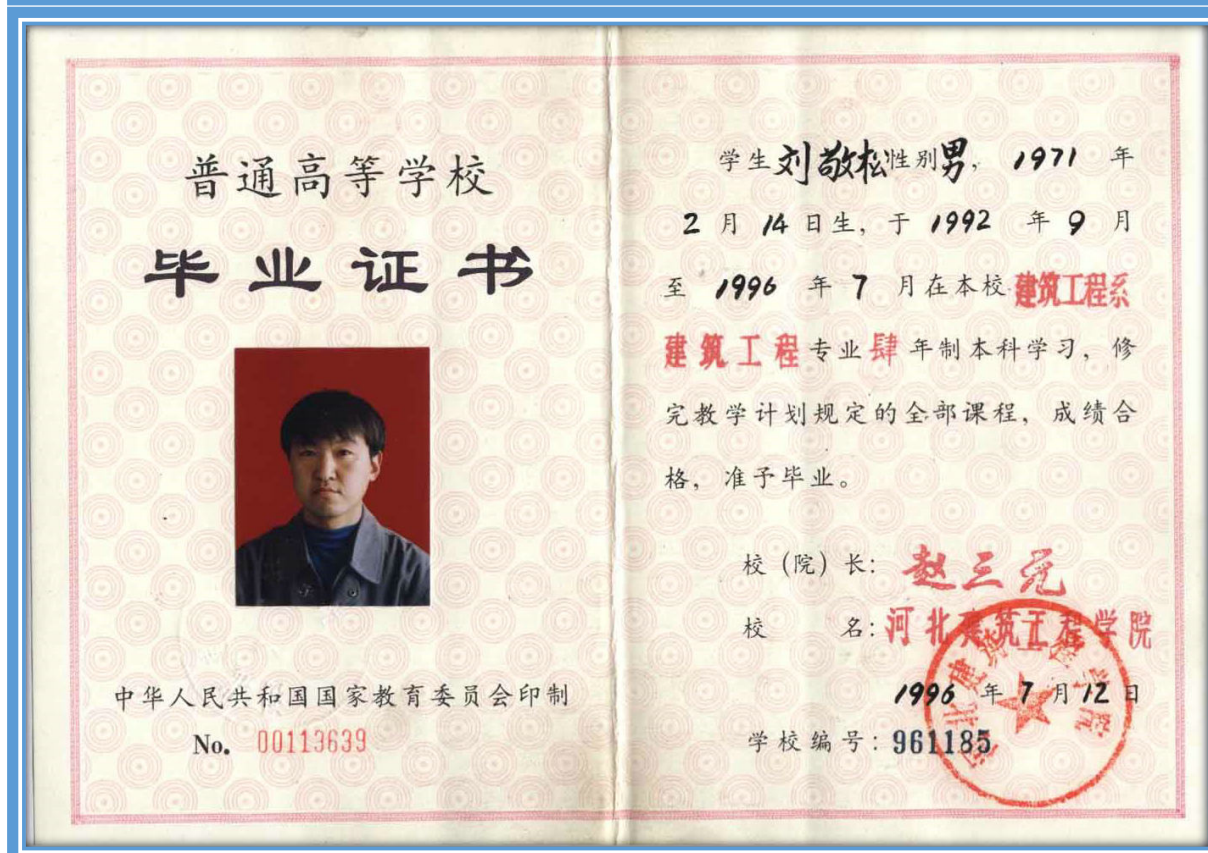 普通高等学校
毕业证书
中华人民共和国国家教育委员会印制
No. 00113639
学生刘敬松性别男，1971年
2月14日生，于1992年9月
至1996年7月在本校建筑工程系
建筑工程专业肆年制本科学习，修
完教学计划规定的全部课程，成绩合
格，准予毕业。
校（院）长：赵三元
校名：河北建筑工程学院
1996年7月12日
学校编号：961185
河北建筑工程学院